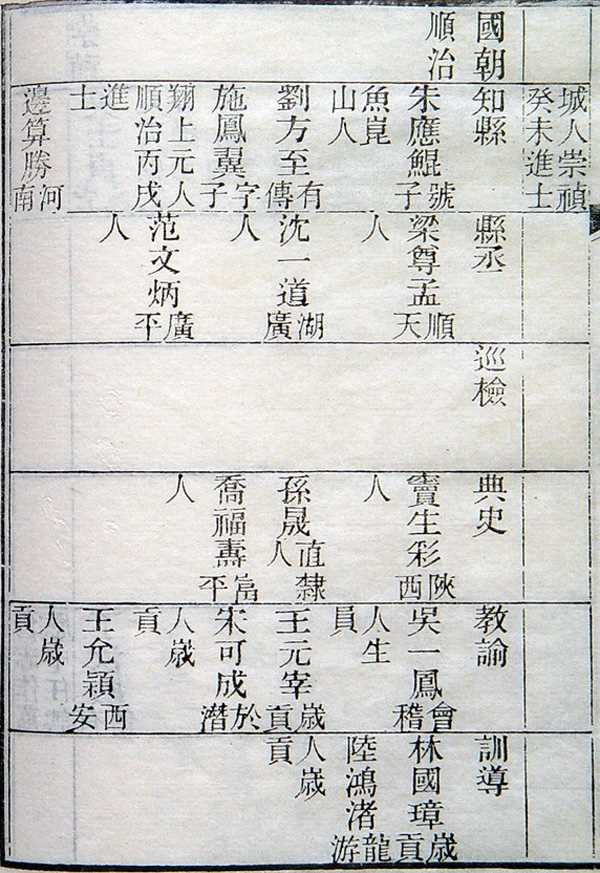 城人崇禎
癸未進士
國朝
順治
知縣
朱應鯤號子
魚崑
山人
劉方至有傳
施鳳翼字子
翔上元人
順治丙戌
進
士
邊算勝河南
縣丞
梁尊孟順天
人
沈一道湖廣
人
范文炳廣平
人
巡檢
典史
竇生彩陝西
人
孫晟直隸
人
喬福壽富平
人
教諭
吳一鳳會稽
人生
員
王元宰歲貢
宋可成於潛
人歲
貢
王允穎西安
人歲
貢
訓導
林國璋歲貢
陸鴻渚龍游
人歲
貢